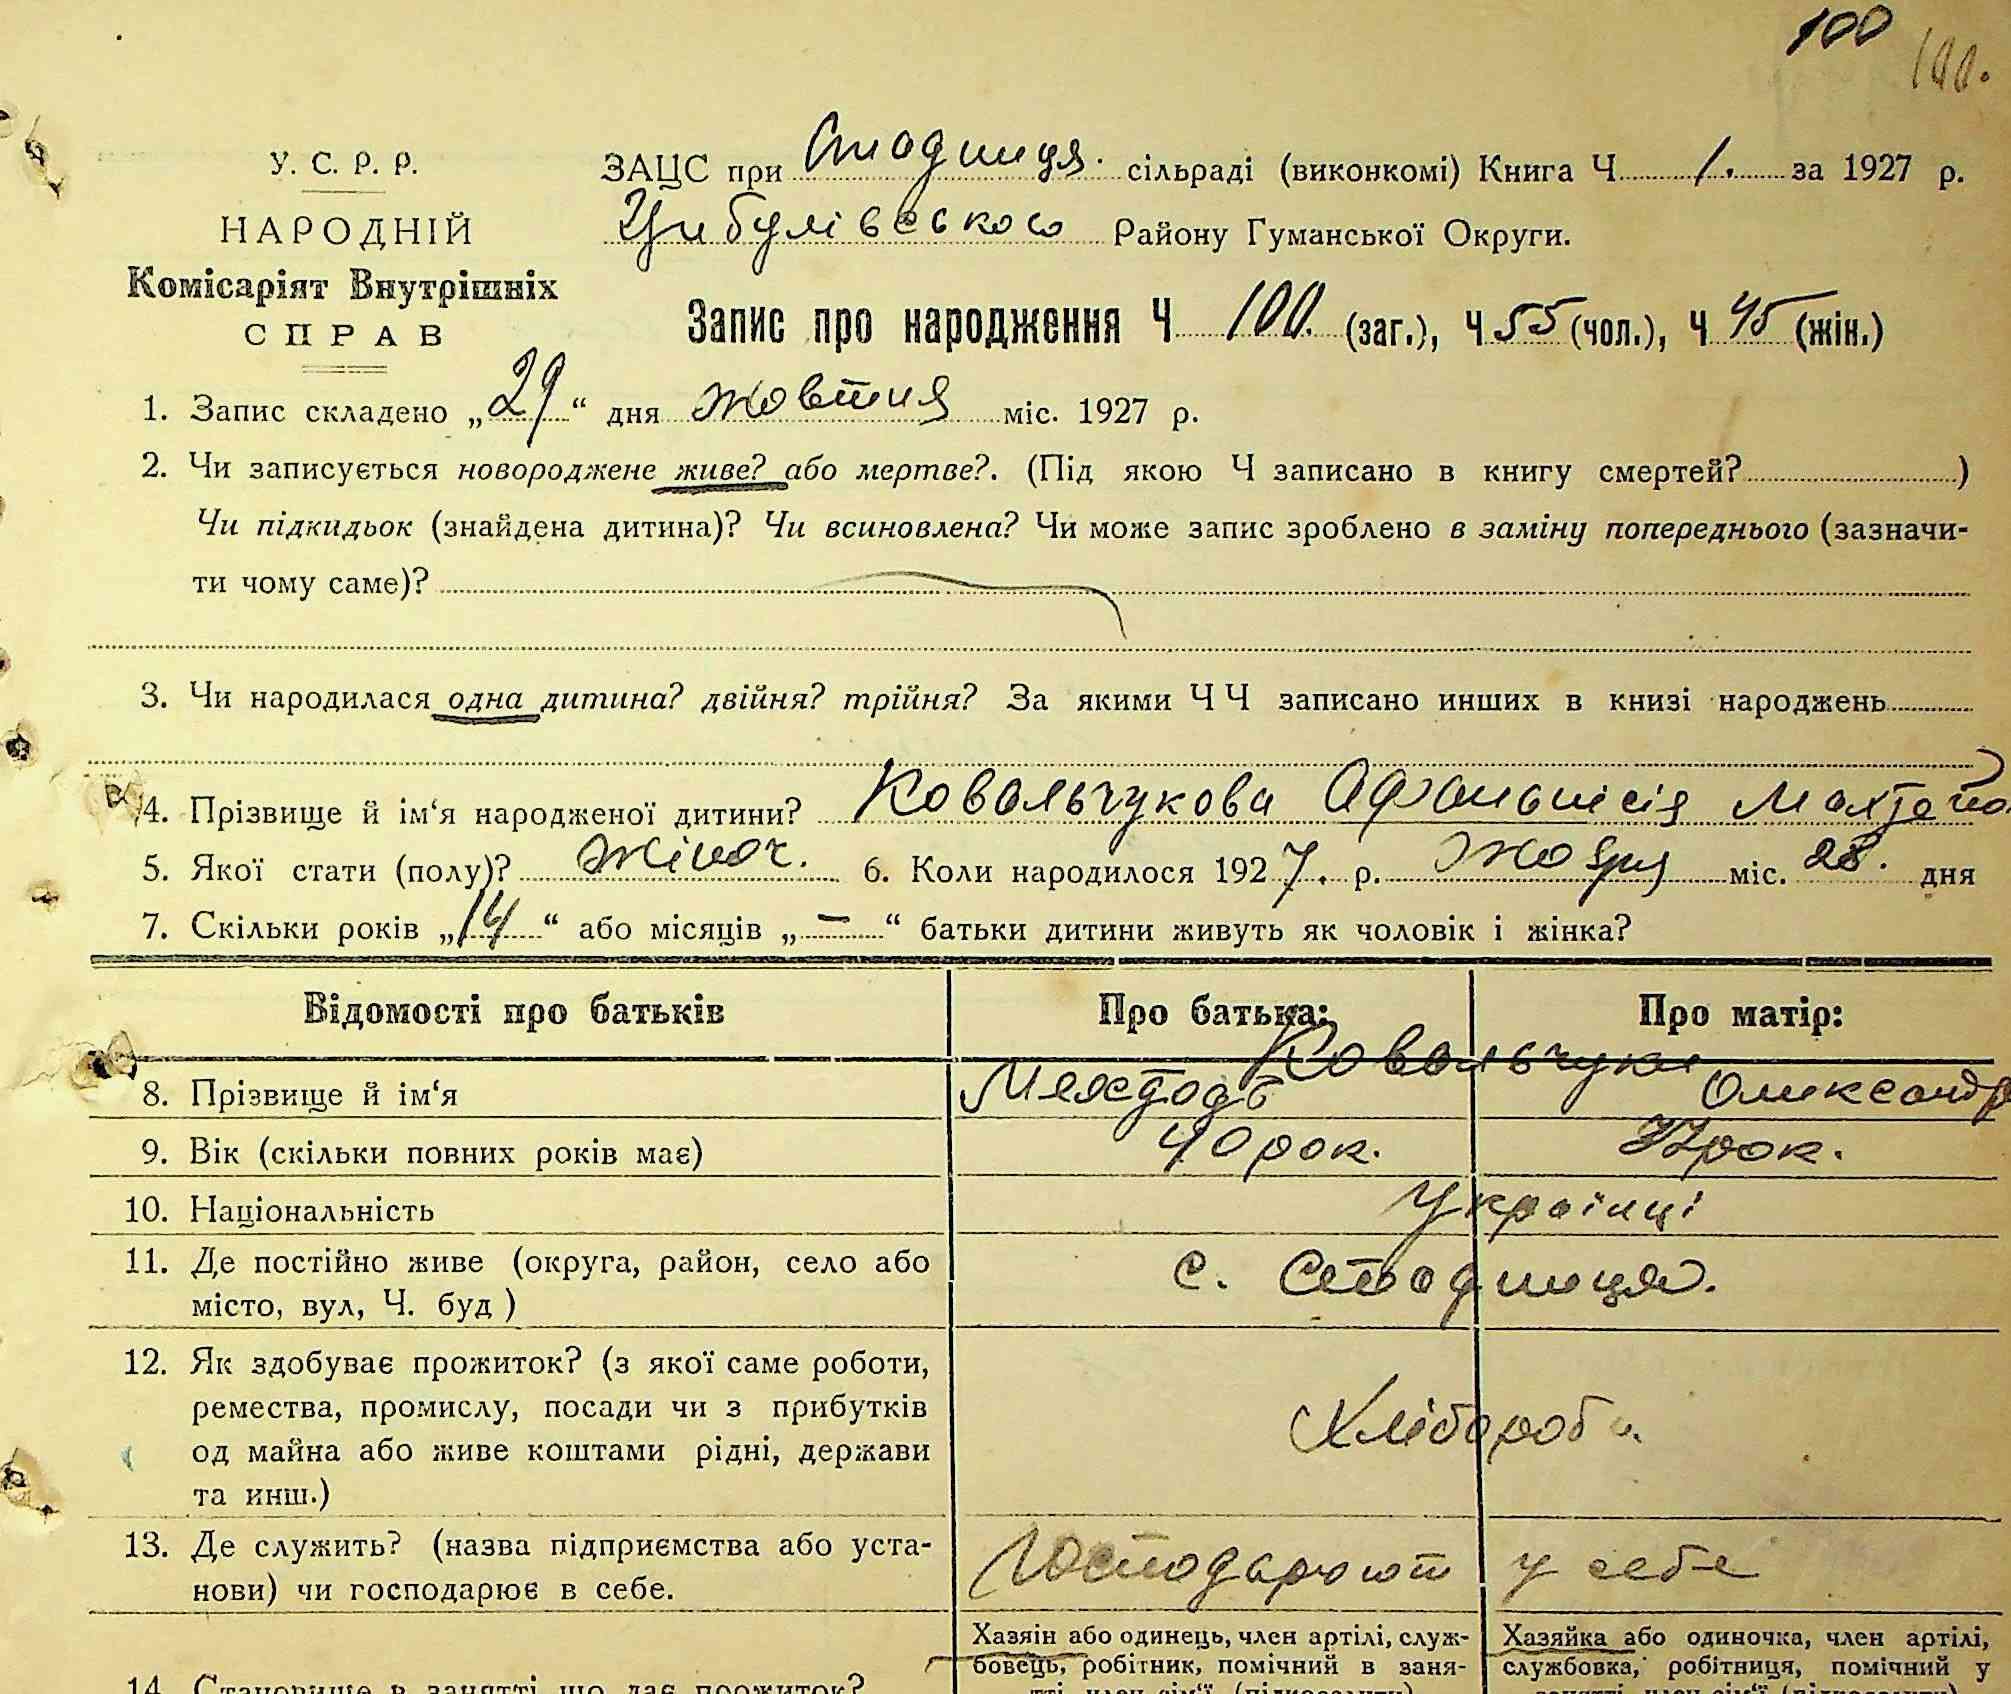 100 100.
У. С. Р. Р.
НАРОДНІЙ
Комісаріят Внутрішніх
СПРАВ
ЗАЦС при Стадниця. сільраді (виконкомі) Книга Ч 1. за 1927 р.
Цибулівського Району Гуманської Округи.
Запис про народження Ч 100. (заг.), Ч 55 (чол.), Ч 45 (жін.)
1. Запис складено „29“ дня жовтня міс. 1927 р.
2. Чи записується новороджене живе? або мертве?. (Під якою Ч записано в книгу смертей? )
Чи підкидьок (знайдена дитина)? Чи всиновлена? Чи може запис зроблено в заміну попереднього (зазначи-
ти чому саме)?
3. Чи народилася одна дитина? двійня? трійня? За якими ЧЧ записано инших в книзі народжень
4. Прізвище й ім‘я народженої дитини? Ковальчукова
5. Якої стати (полу)? жіноч. 6. Коли народилося 1927. р. міс. 28. дня
7. Скільки років „14“ або місяців „—“ батьки дитини живуть як чоловік і жінка?
Відомості про батьків Про батька: Про матір:
Ковальчуки
8. Прізвище й ім‘я Олександр
9. Вік (скільки повних років має) 40 рок. рок.
10. Національність Українці
11. Де постійно живе (округа, район, село або
місто, вул, Ч. буд ) с. Стадниця.
12. Як здобуває прожиток? (з якої саме роботи,
ремества, промислу, посади чи з прибутків
од майна або живе коштами рідні, держави
та инш.) Хлібороби.
13. Де служить? (назва підприємства або уста-
нови) чи господарює в себе. Господарюют у себе
Хазяін або одинець, член артілі, служ-
бовець, робітник, помічний в заня-
Хазяйка або одиночка, член артілі,
службовка, робітниця, помічний у
14. Становище в занятті що дає прожиток?